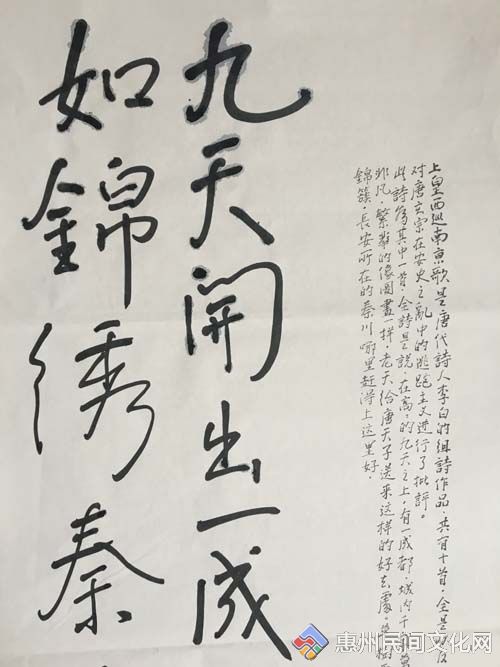 上皇西巡南京歌是唐代詩人李白的组詩作品.共有十首.全是
对唐玄宗在安史之亂中的逃跑主义進行了批評。
此詩為其中一首.全詩是說.在高々的九天之上.有一成都.城内千
非凡.繁華的像圖畫一样.老天给唐天子送来这样的好去處.
錦簇.長安所在的秦川哪里赶得上这里好.
九天開出一成
如錦绣秦
惠州民间文化网